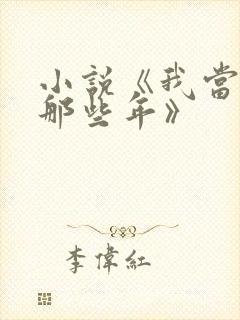 小說《我當
那些年》
李偉紅